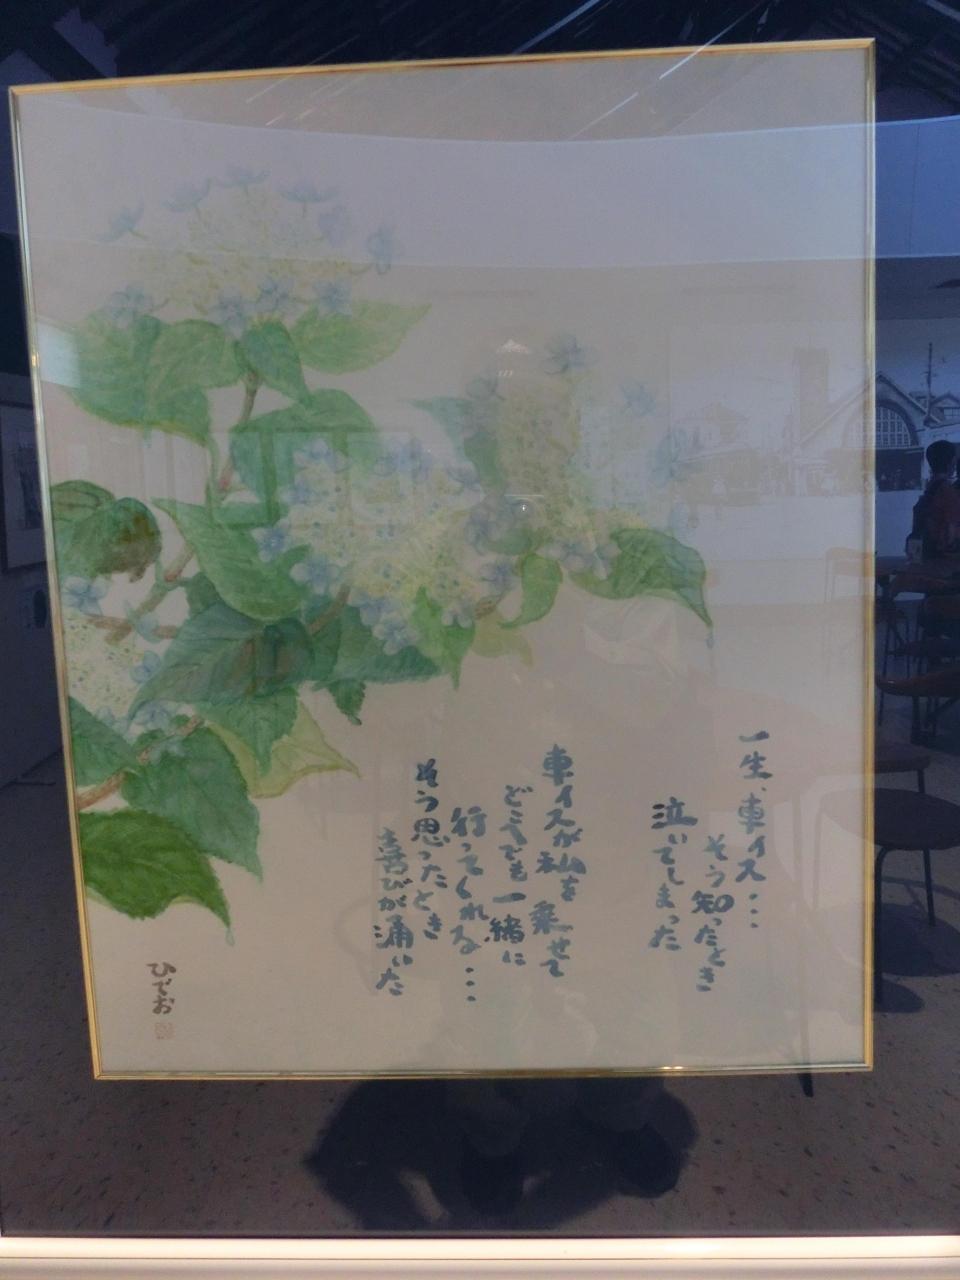 一生、車イス・・・
そう知ったとき
泣いてしまった
車イスが私を乗せて
どこへでも一緒に
行ってくれる・・・
そう思ったとき
喜びが涌いた
ひでお